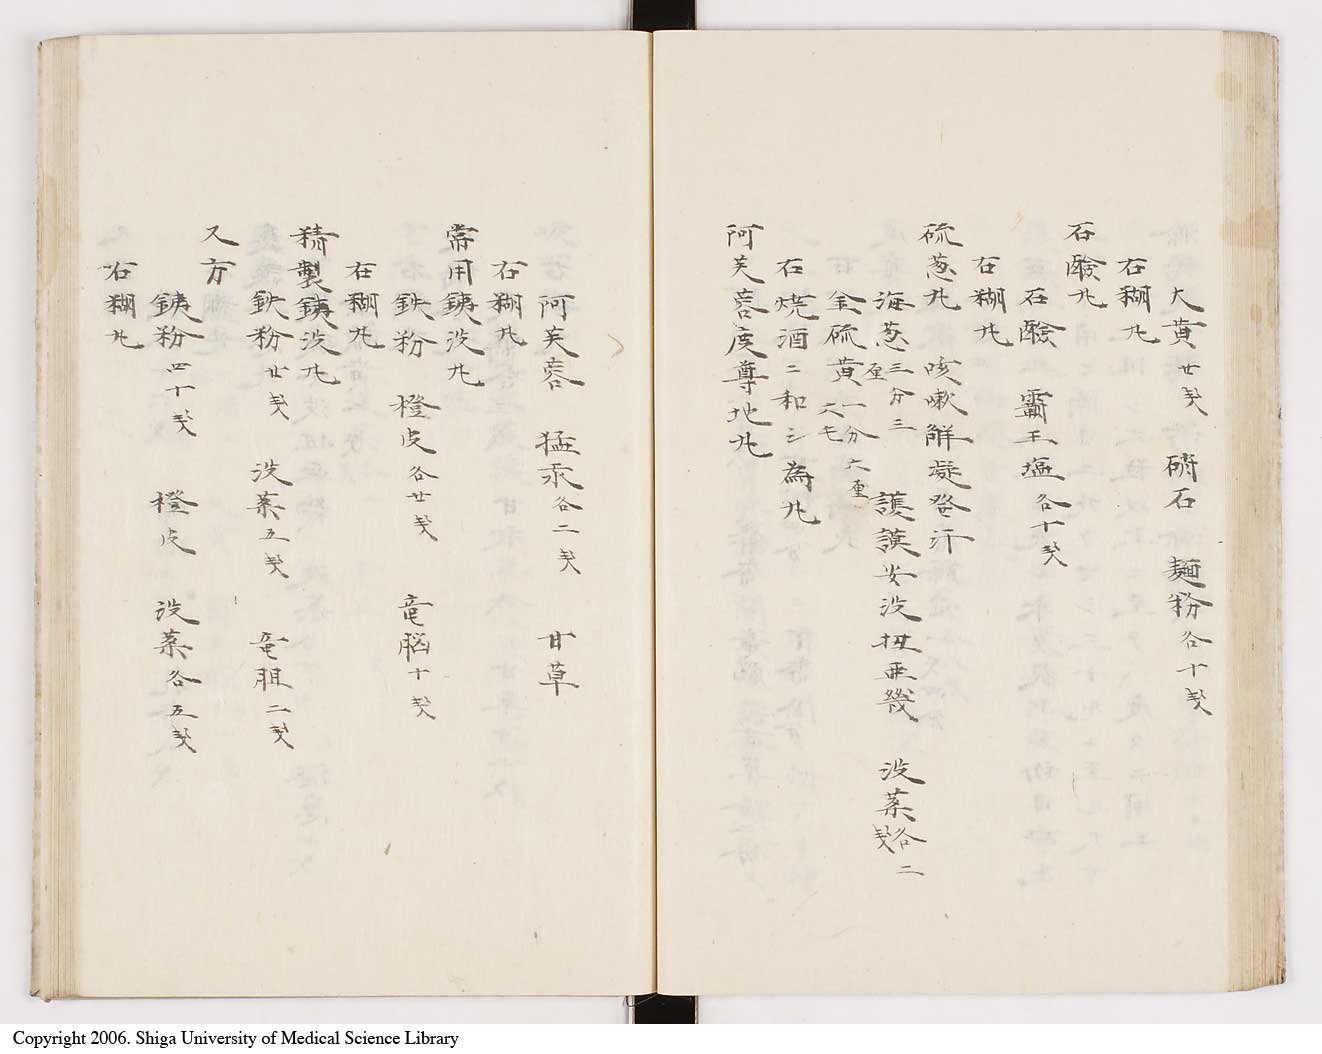 大黄廿戔 硝石 麺粉各十戔
右糊丸
石鹸丸
石鹸 霜王塩各十戔
右糊丸
硫葱丸 咳嗽解凝発汗
海葱三分三厘 護謨安没扭亜幾 没薬各二戔
金硫黄一分六厘六毛
右焼酒ニ和シ為丸
阿芙蓉度尊地丸
阿芙蓉 猛汞各二戔 甘草
右糊丸
常用鉄没丸
鉄粉 橙皮各廿戔 竜脳十戔
右糊丸
精製鉄没丸
鉄粉廿戔 没薬五戔 竜胆二戔
又方
鉄粉四十戔 橙皮 没薬各五戔
右糊丸
Copyright 2006. Shiga University of Medical Science Library